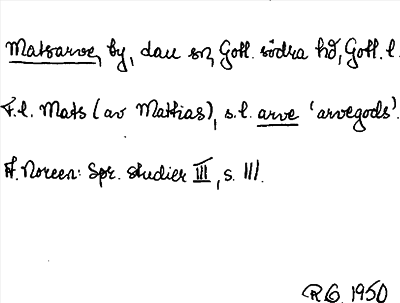 Matsarve, by, dan sn, Gotl. södra hd, Gotl. l.
F.l. Mats (av Mathias), s.l. arve 'arvegods'.
A. Noreen: Spr. studier III, s. 111.
RG 1950